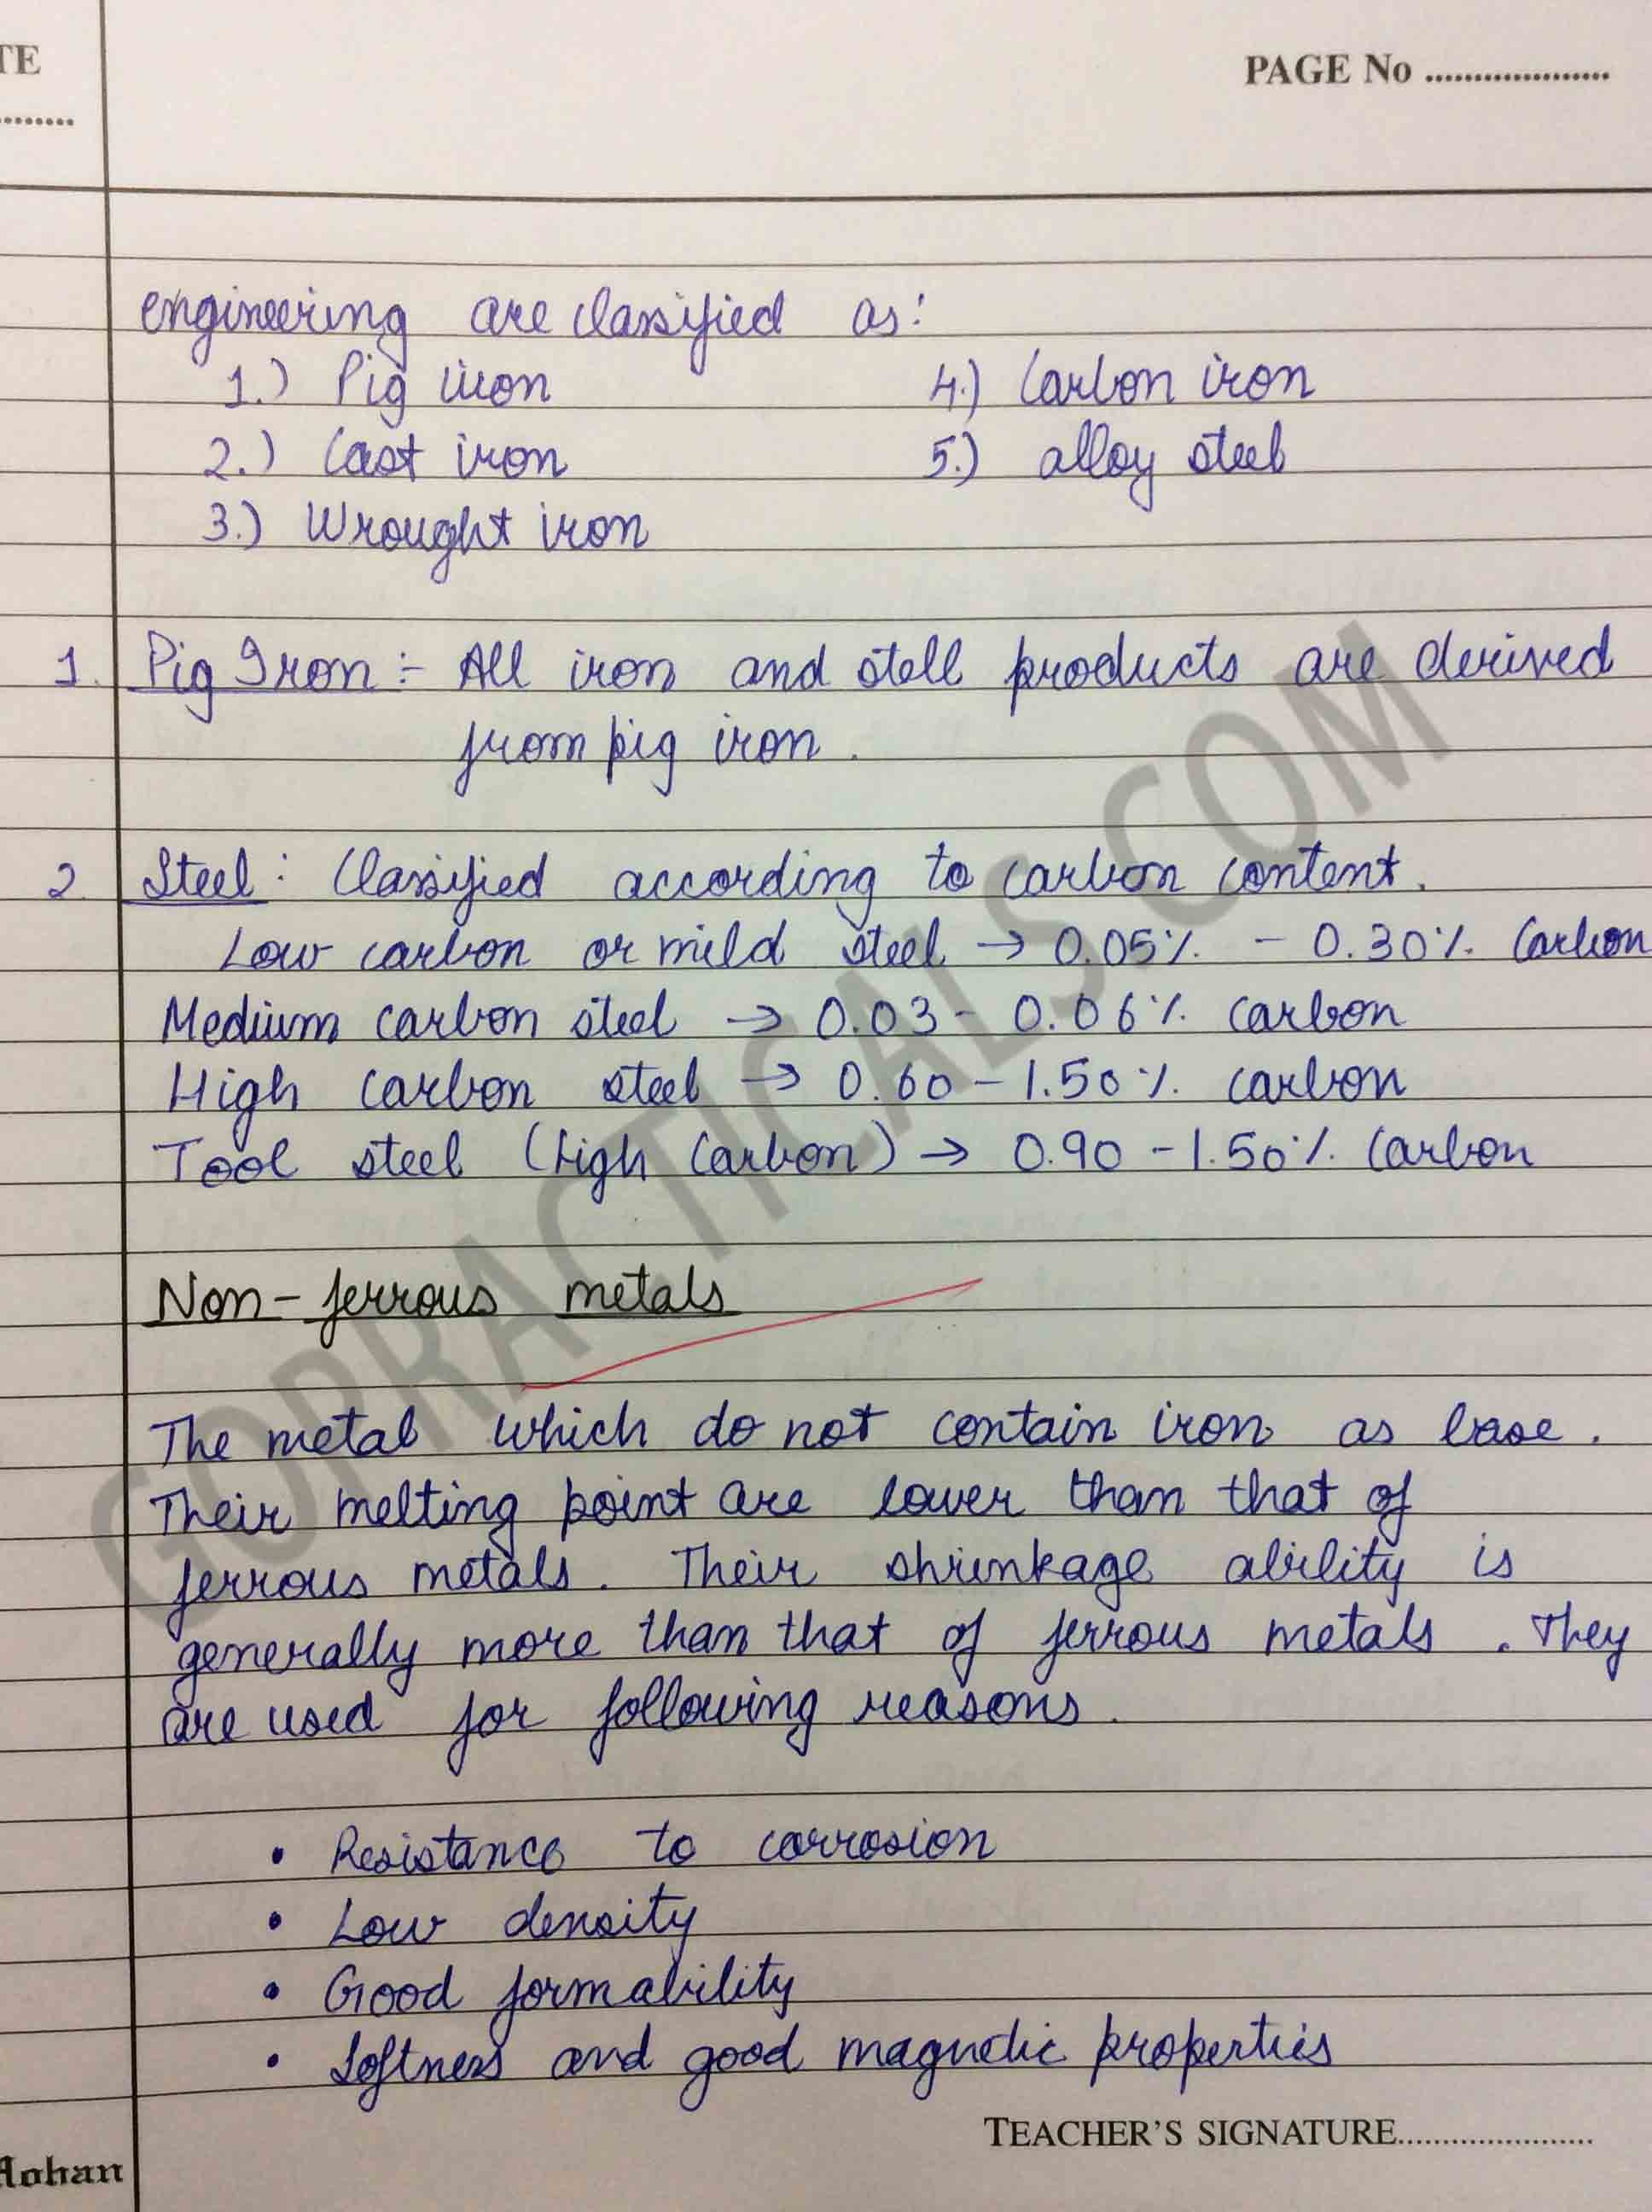 TE
PAGE No ....................
........
engineering are classified as:
1.) Pig iron
4.) Carbon iron
2.) Cast iron
5.) alloy steel
3.) Wrought iron
1. Pig Iron :- All iron and stell products are derived
from pig iron.
2. Steel: Classified according to carbon content.
Low carbon or mild steel → 0.05% - 0.30% Carbon
Medium carbon steel → 0.03 - 0.06% carbon
High carbon steel → 0.60 - 1.50% carbon
Tool steel (high carbon) → 0.90 - 1.50% Carbon
Non-ferrous metals
The metal which do not contain iron as base.
Their melting point are lower than that of
ferrous metals. Their shrinkage ability is
generally more than that of ferrous metals. They
are used for following reasons.
• Resistance to corrosion
• Low density
• Good formability
• Softness and good magnetic properties
TEACHER'S SIGNATURE......................
Mohan
GOPRACTICALS.COM